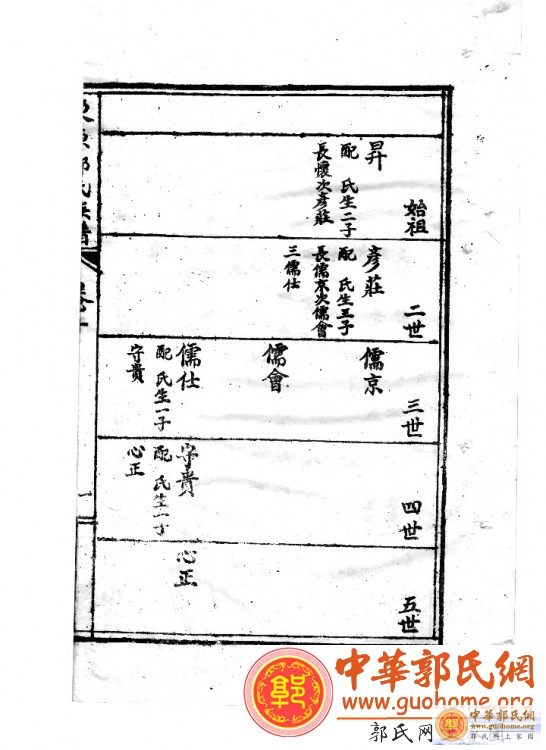 始祖
昇
配 氏生二子
長懷次彥莊
二世
彥莊
配 氏生三子
長儒京次儒會
三儒仕
三世
儒京
儒會
儒仕
配 氏生一子
守貴
四世
守貴
配 氏生一子
心正
五世
心正
郭氏族譜
一
中華郭氏網
www.guohome.org
郭氏网
中華郭氏網
郭氏网上家园